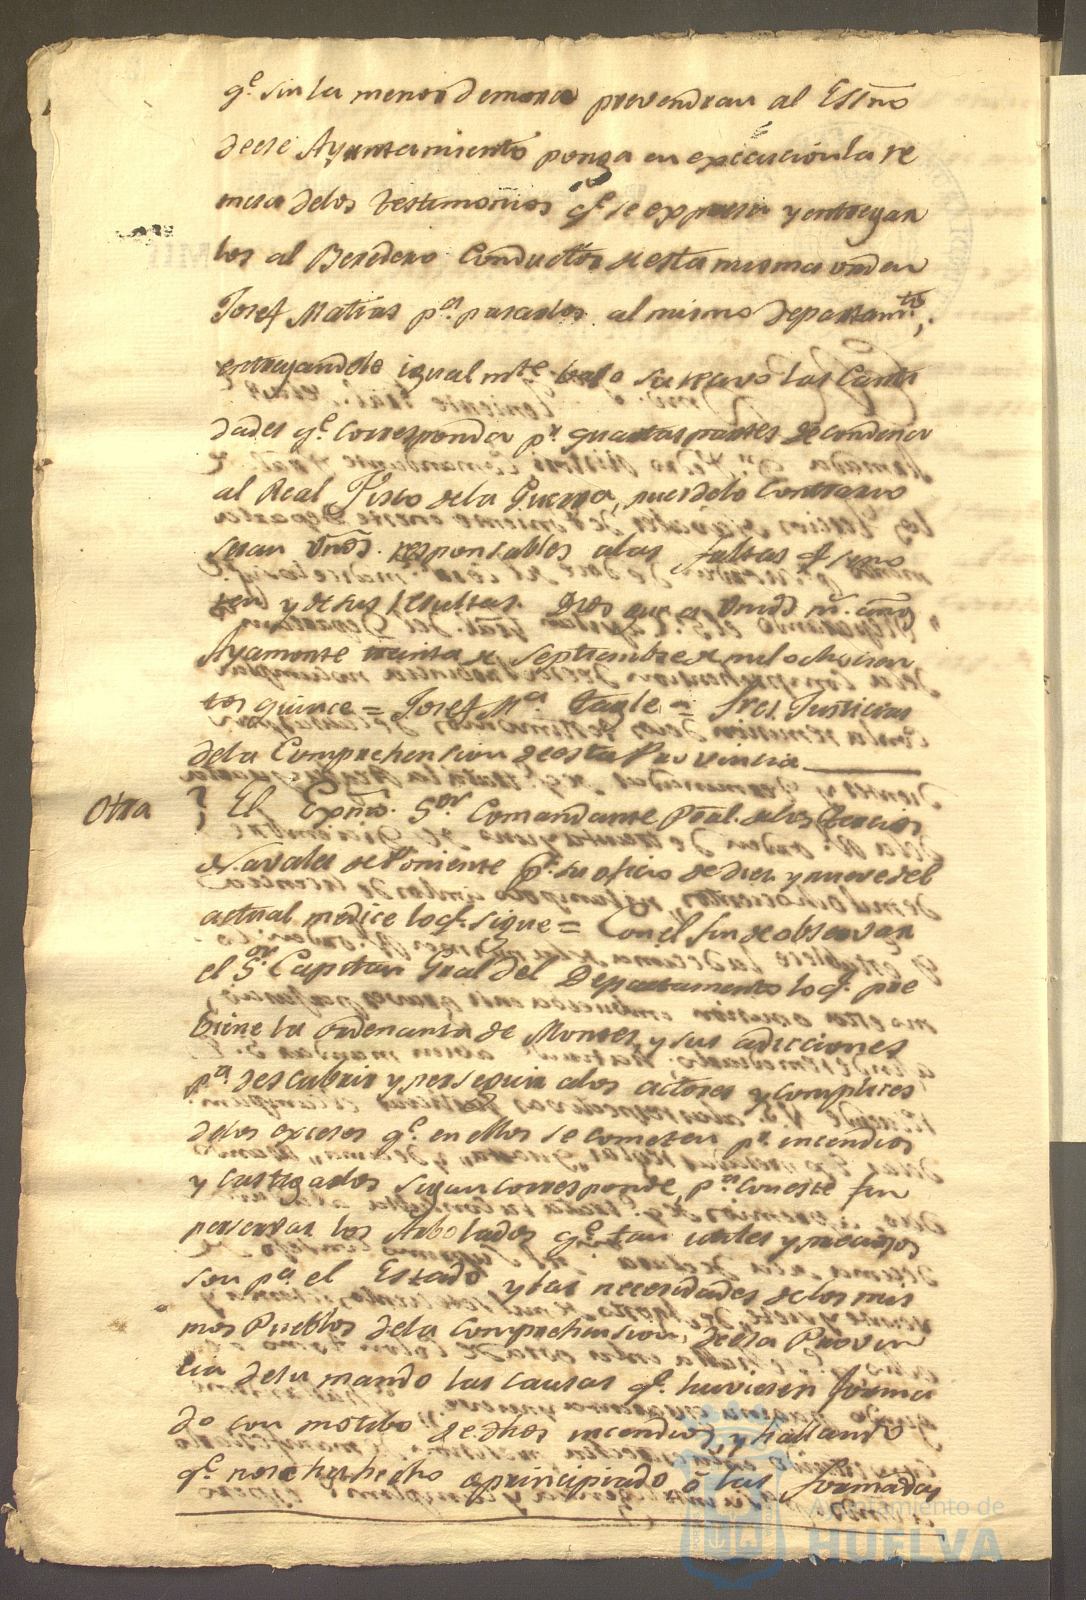 qe. sin la menor demora prevendran al Essno
deese Ayuntamiento ponga en execucion la re
mesa delos testimonios qe. se expresa y entregan
los al Beredero Conductor de esta misma orden
Josef Matias pa. pasarlos al mismo Departamto.
entregandole igualmte. bajo su resivo las Canti
dades qe. corresponda pr. quartas partes de condena
al Real Fisco dela Guerra, pues delo Contrario
seran Vmds. responsables alas faltas qe. se no
ten y de sus resultas. Dios gue. a Vmds ms. ans.
Ayamonte treinta de septiembre de mil ochocien
tos quince = Josef Ma. Tagle = Sres. Justicias
dela Comprehension de esta Provincia
Otra
El Exmo. Sor. Comandante Pral. delos Tercios
Navales de Poniente pr. su oficio de diez y nueve del
actual me dice loqe. sigue = Con el fin de observar
el Sor. Capitan Gral del Departamento loqe. pre
biene la ordenanza de Montes, y sus adicciones
pa. descubrir y perseguir alos actores y complices
delos excesos qe. en ellos se cometen pr. incendios
y castigarlos segun corresponde, pa. con este fin
perservar los Arbolados qe. tan utiles y preciosos
son pa. el Estado y las necesidades delos mis
mos Pueblos dela Comprehension deesa Provin
cia desu mando las causas qe. huviesen forma
do con motibo de dhos incendios, y hallando
qe. nose ha hecho o principiado ó las formadas
Ayuntamiento de
HUELVA